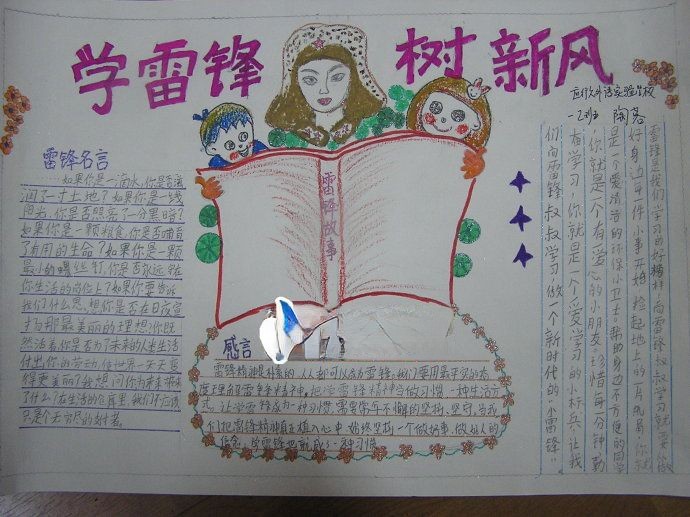 学雷锋 树新风
应行外语实验学校
一2班
雷锋名言
如果你是一滴水,你是否滋
润了一寸土地?如果你是一线
阳光,你是否照亮了一分黑暗?
如果你是一颗粮食,你是否哺育
了有用的生命?如果你是一颗
最小的螺丝钉,你是否永远
你生活的岗位上?如果你要告诉
我们什么思想,你是否在日夜宣
扬那最美丽的理想?你既
然活着,你是否为了未来的人类生活
付出你的劳动,使世界一天天变
得更美丽?我想问你,为未来带来
了什么?在生活的仓库里,我们不应该
只是个无穷尽的支付者。
雷锋故事
感言
雷锋精神是朴素的,人人都可以成为雷锋。我们要用最平实的态
度理解雷锋精神,把学雷锋精神当做习惯一种生活方
式。让学雷锋成为一种习惯,需要常年不懈的坚持,坚守,当我
们把雷锋精神真正植入心中,始终坚持一个做好事、做好人的
信念,学雷锋也就成了一种习惯
雷锋是我们学习的好榜样,向雷锋叔叔学习就要从做
好身边每一件小事开始,捡起地上的一片纸屑,你就
是一个爱清洁的环保小卫士;帮助身边不方便的同学
,你就是一个有爱心的小朋友;珍惜每一分钟勤
奋学习,你就是一个爱学习的小标兵,让我
们向雷锋叔叔学习做一个新时代的“小雷锋”